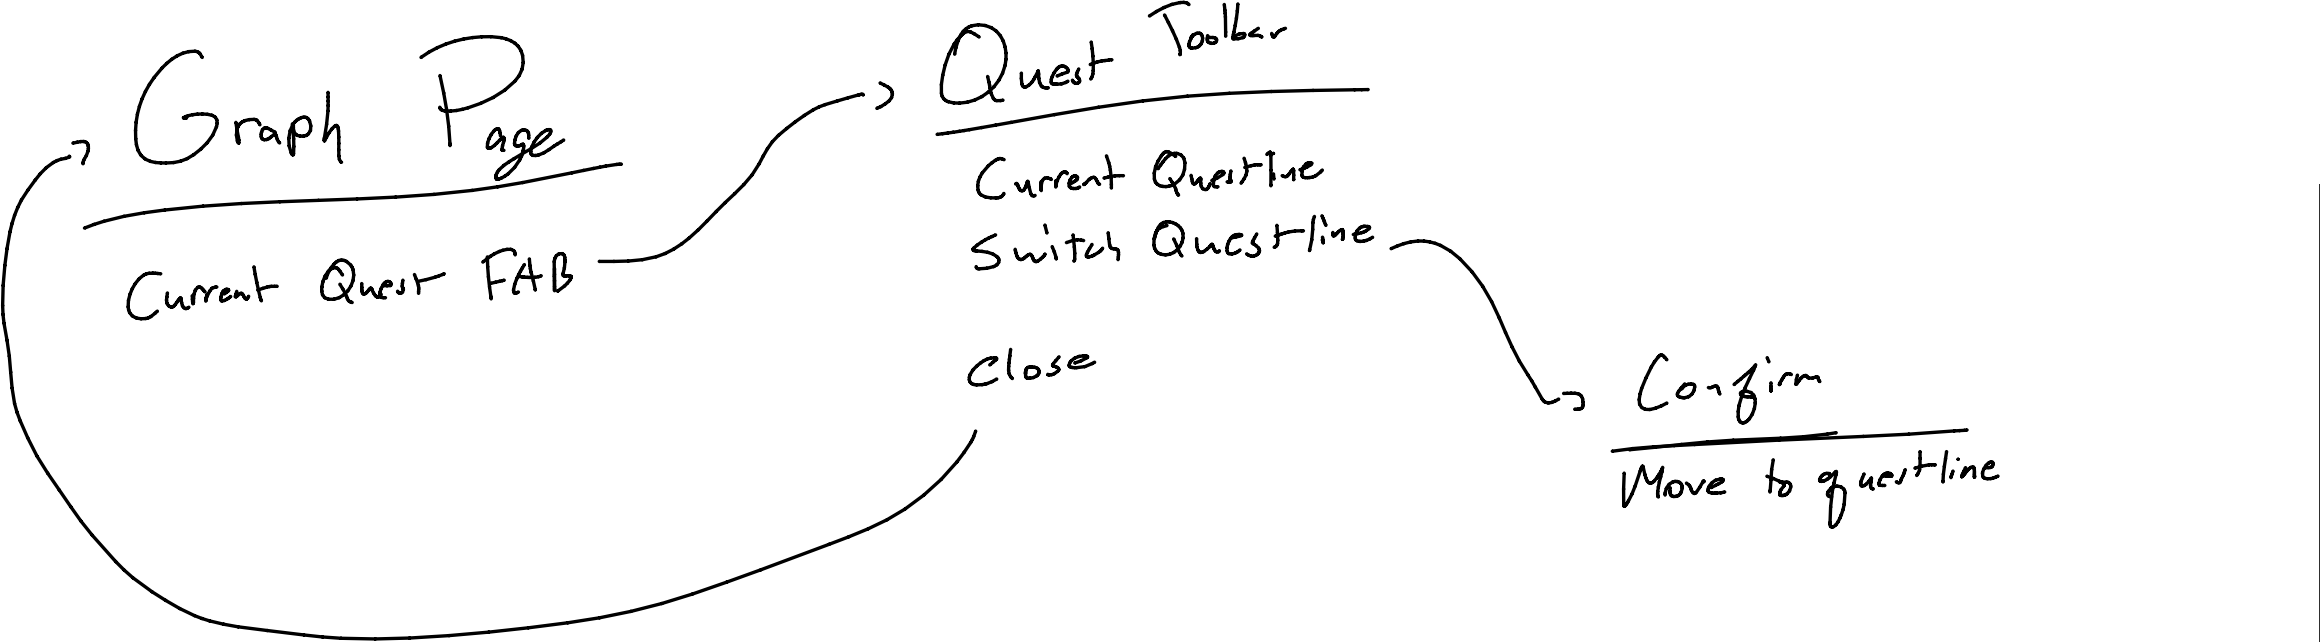 Graph Page
Current Quest FAB
Quest Toolbar
Current Questline
Switch Questline
Close
Confirm
Move to questline